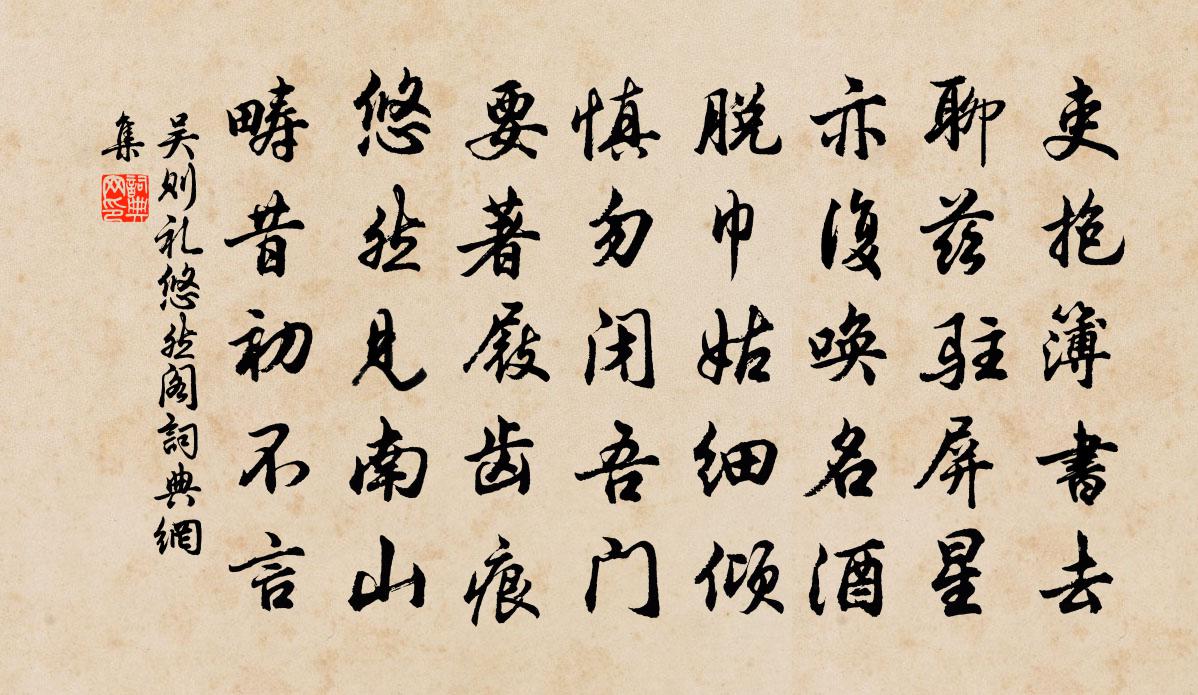 吏抱簿書去
聊兹駐屏星
亦復唤名酒
脱巾姑细倾
慎勿闭吾门
要著屐齿痕
悠然见南山
畴昔初不言
吴则礼悠然阁詞典網
集
詞典网印